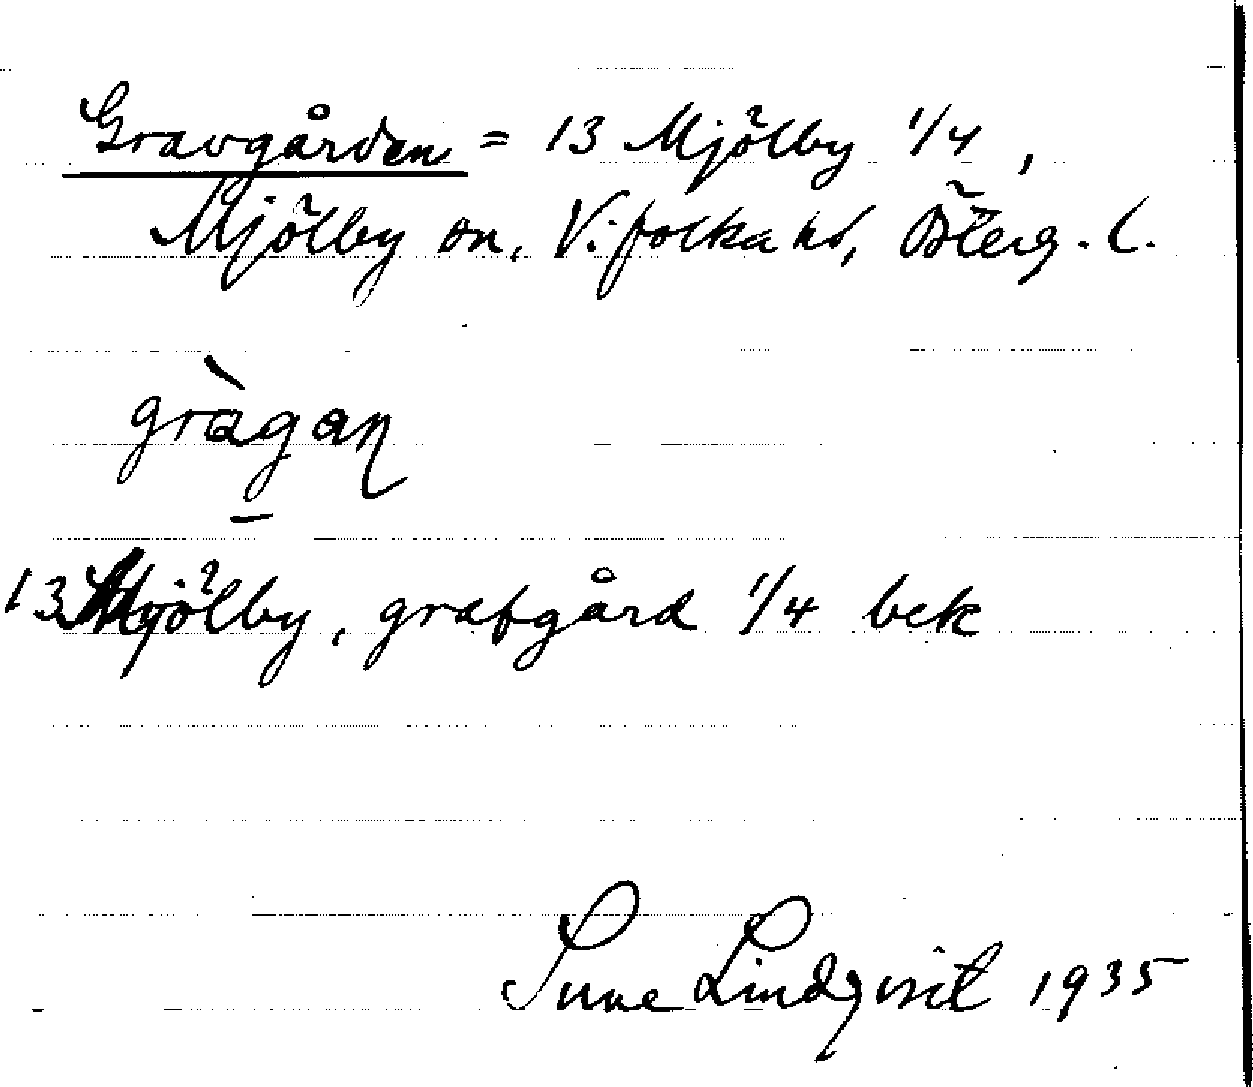 Gravgården = 13 Mjölby 1/4,
Mjölby sn, Vifolka hd, Öterg. l.
gràgan
13 Mjölby, grafgård 1/4 bek
Sune Lindqvist 1935